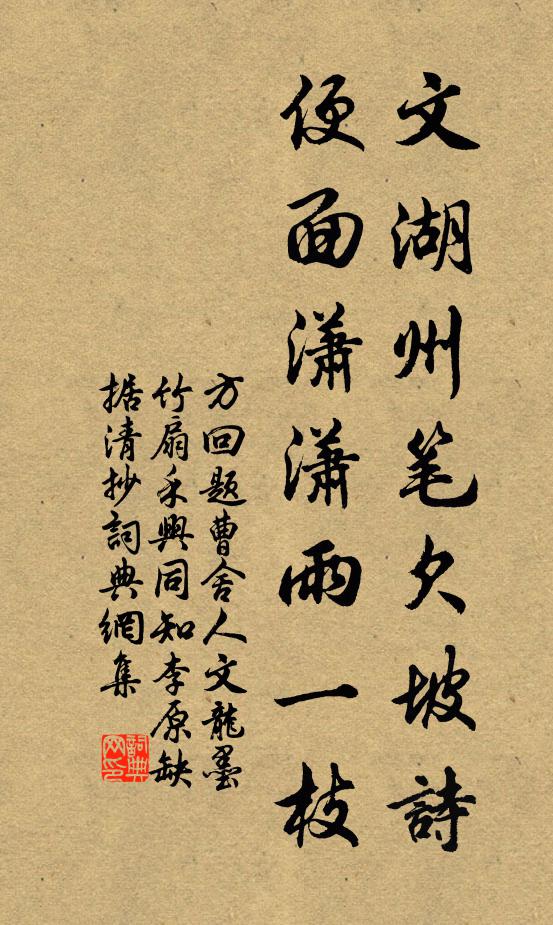 文湖州笔欠坡詩
便面瀟瀟雨一枝
方回题曹舍人文龍墨
竹扇永興同知李原缺
据清抄詞典網集
詞典网印